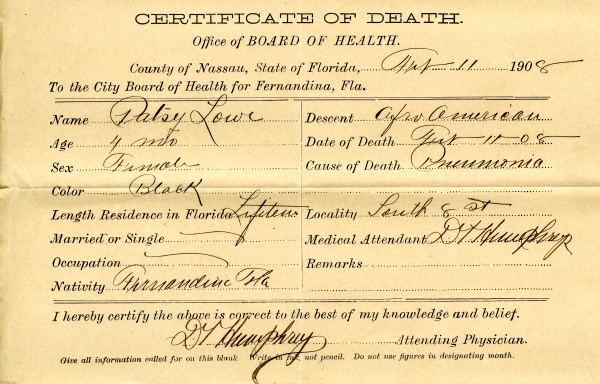 CERTIFICATE OF DEATH.
Office of BOARD OF HEALTH.
County of Nassau, State of Florida, 11 1908
To the City Board of Health for Fernandina, Fla.
Name Patsy Lowe Descent Afro American
Age 4 mo Date of Death 11 08
Sex Female Cause of Death Pneumonia
Color Black
Length Residence in Florida Lifetime Locality South 8 st
Married or Single Medical Attendant D Humphrey
Occupation Remarks
Nativity Fernandina Fla
I hereby certify the above is correct to the best of my knowledge and belief.
D Humphrey Attending Physician.
Give all information called for on this blank. Write in ink, not pencil. Do not use figures in designating month.